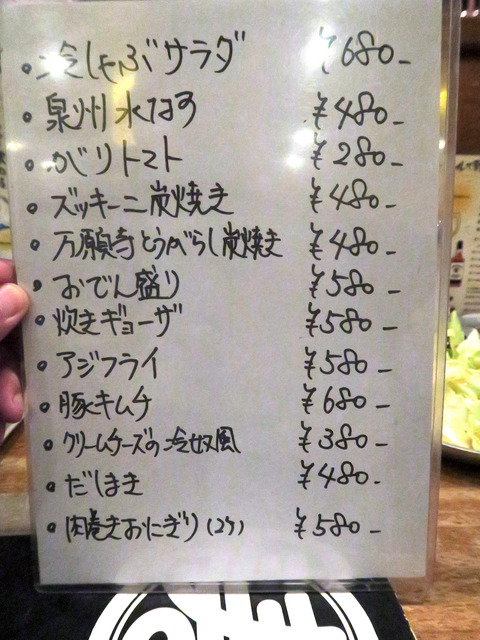 ・冷しゃぶサラダ ¥680-
・泉州水なす ¥480-
・ガリトマト ¥280-
・ズッキーニ炭焼き ¥480-
・万願寺とうがらし炭焼き ¥480-
・おでん盛り ¥580-
・炊きギョーザ ¥580-
・アジフライ ¥580-
・豚キムチ ¥680-
・クリームチーズの冷奴風 ¥380-
・だしまき ¥480-
・肉巻きおにぎり(2ケ) ¥580-